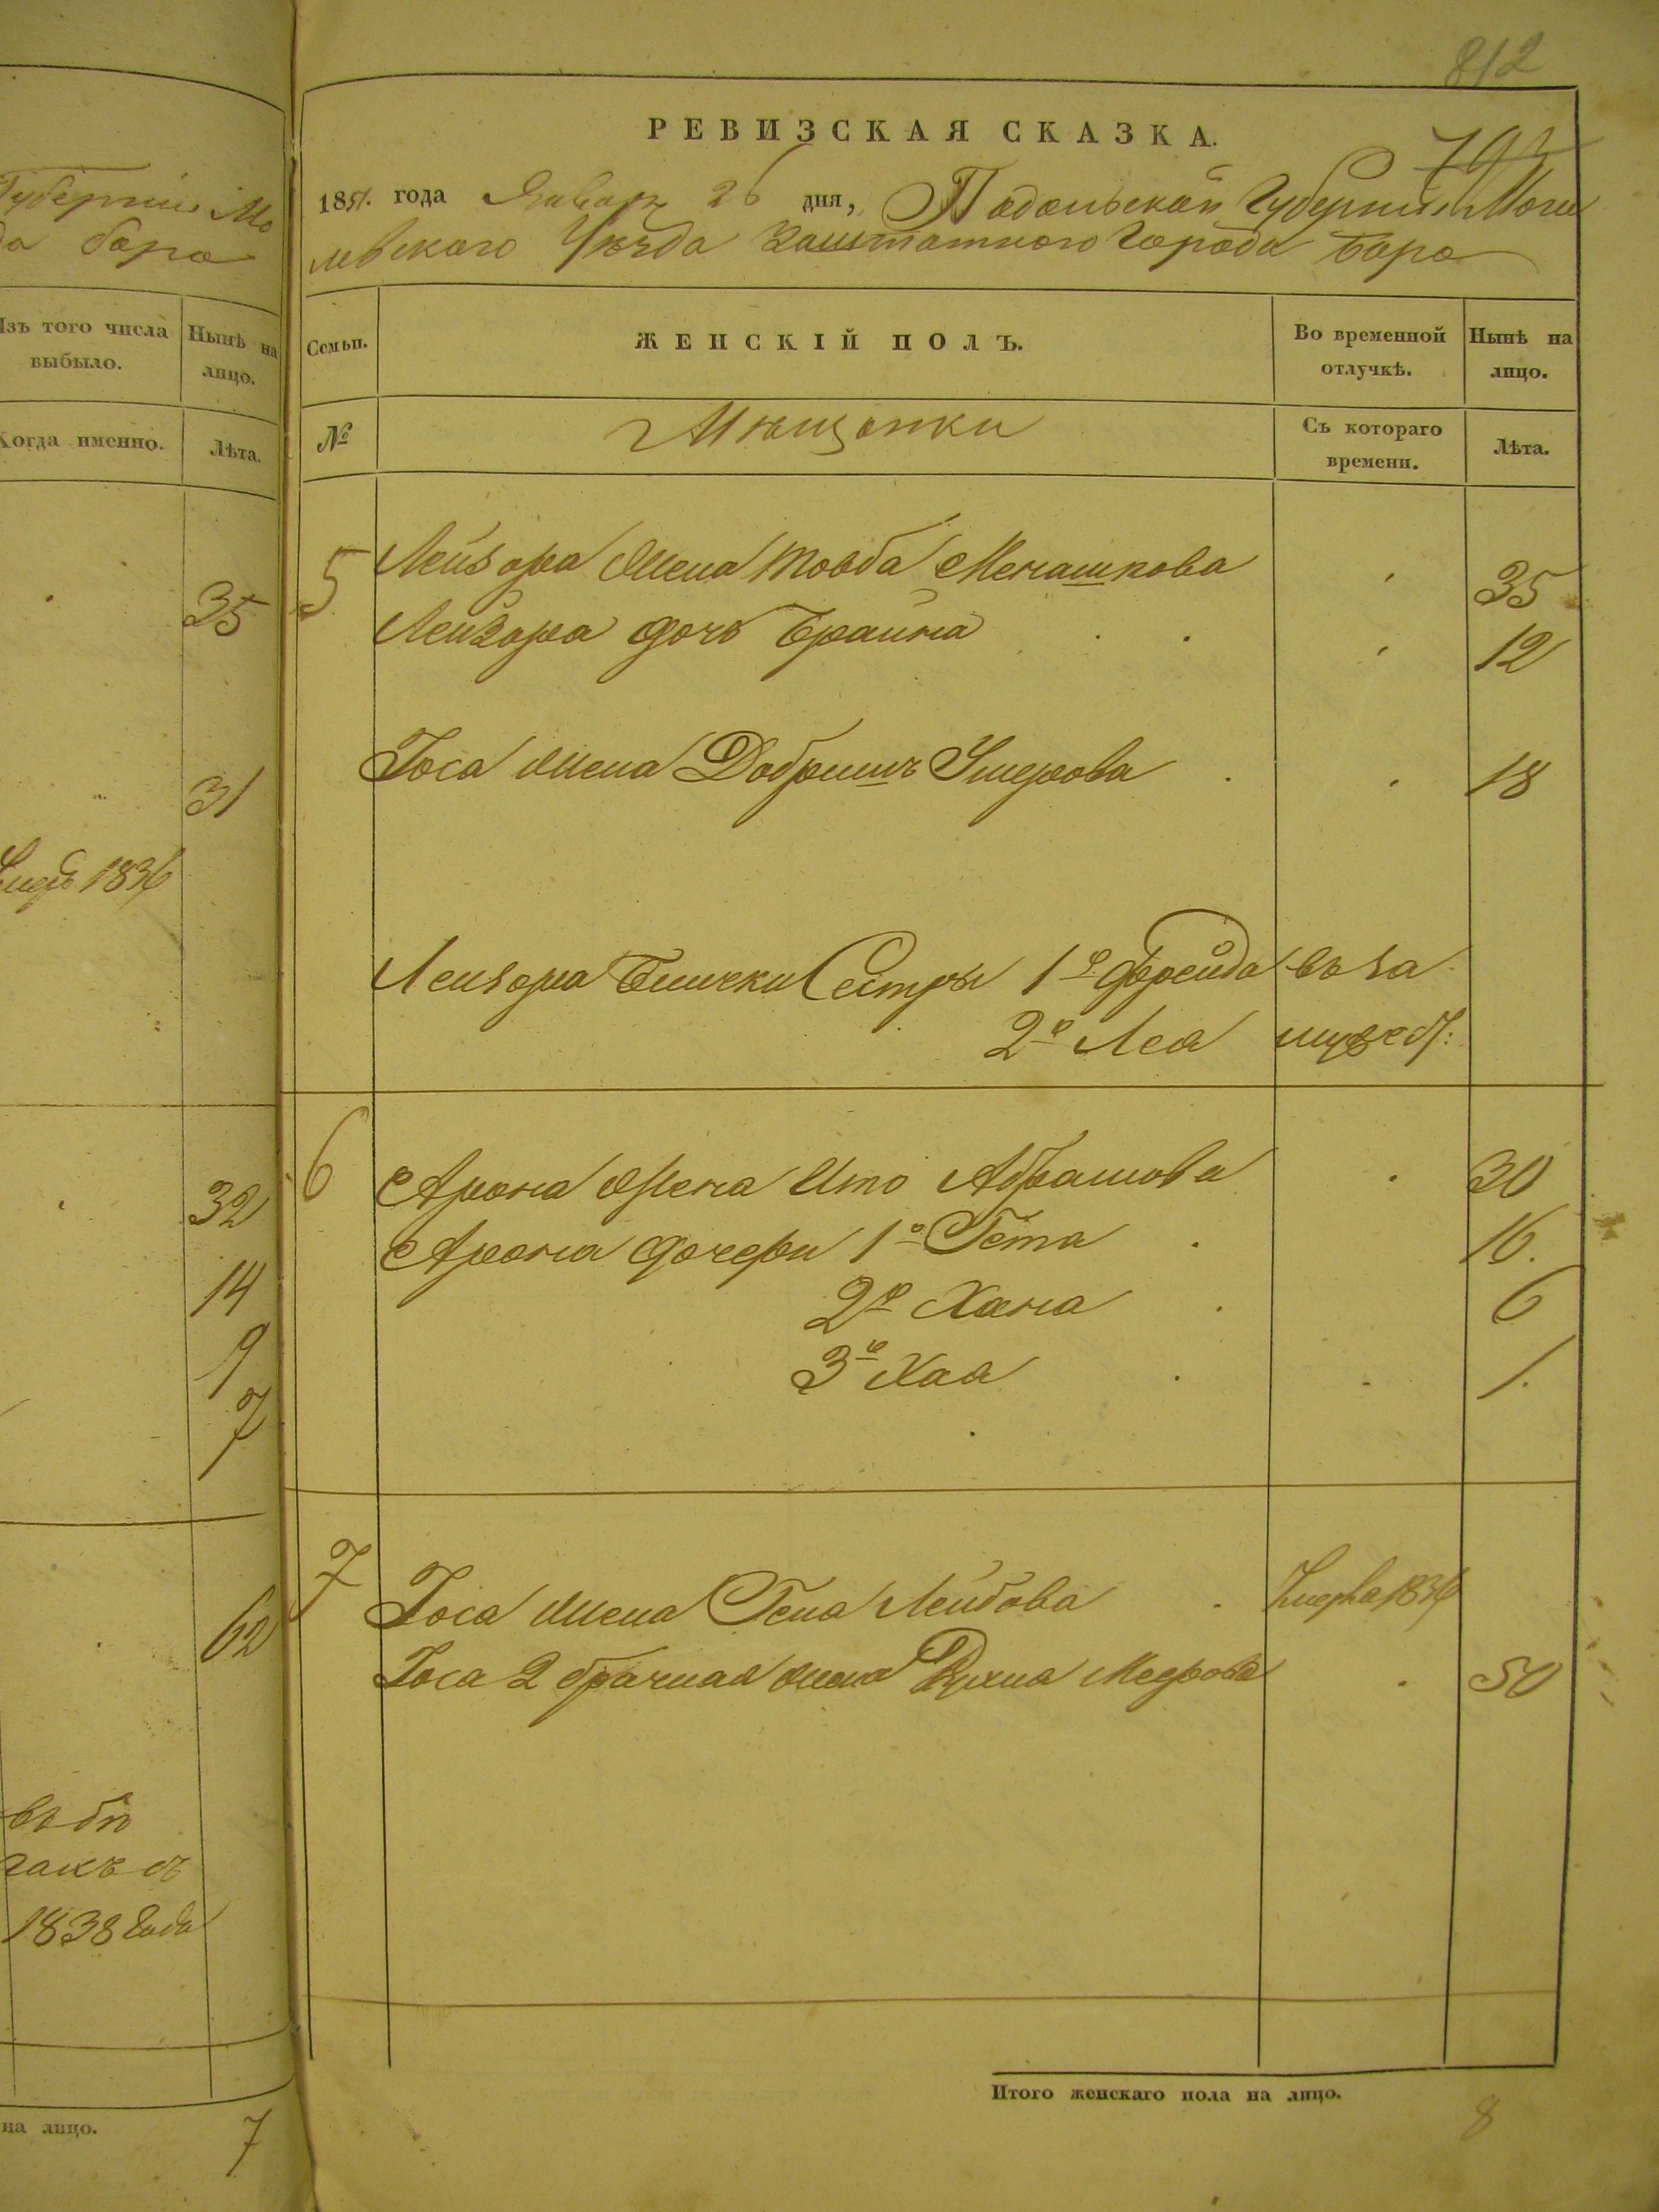 812
РЕВИЗСКАЯ СКАЗКА.
1851. года Января 26 дня, Подольской Губернiи Моги
левского Уѣзда Заштатного Города Бара
Семьи.
ЖЕНСКІЙ ПОЛЪ.
Во временной отлучкѣ.
Нынѣ на лицо.
№
Мѣщанки
Съ котораго времени.
Лѣта.
5 Лейзора Жена Товба Менашкова 35
Лейзора дочь Брайна 12
Іоса Жена Добришъ Ушерова 18
Лейзора Сестры 1е Фрейда въ За
2е Леа мужест:
6 Арона Жена Ита Абрамова 30
Арона дочери 1е Гета 16.
2е Хана 6
3е Хаа 1.
7 Іоса Жена Гена Лейбова 1836
Іоса 2 брачная Жена Рухла Меерова 50
Итого женскаго пола на лицо.
8
Губернiи Мо
да Бара
Изъ того числа выбыло.
Нынѣ на лицо.
Когда именно.
Лѣта.
35
31
1836
32
14
9
7
62
въ
съ
1838 Года
на лицо.
7